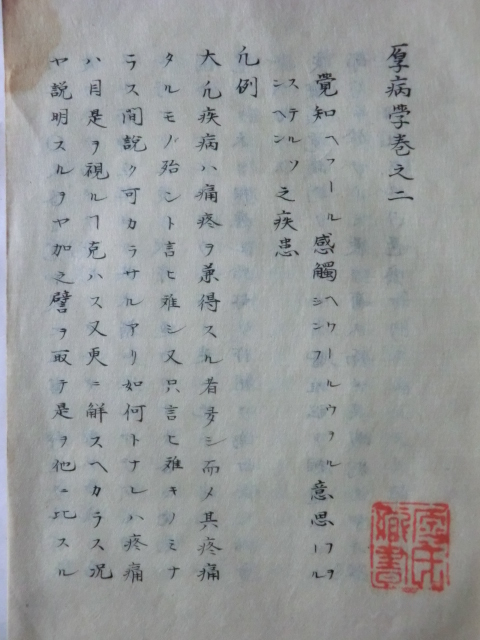 厚病学巻之二
覚知 ヘフール 感觸 ヘウールウヲル シンフ 意思
ステルソ ンヘン 之疾患
凡例
大凡疾病ハ痛疼ヲ兼得スル者多シ而メ其疼痛
タルモノ殆ント言ヒ難シ又只言ヒ難キノミナ
ラス間説ク可カラサルアリ如何トナレハ疼痛
ハ目是ヲ視ルヿ克ハス又更ニ解スヘカラス況
ヤ説明スルヲヤ加之譬ヲ取テ是ヲ他ニ比スル